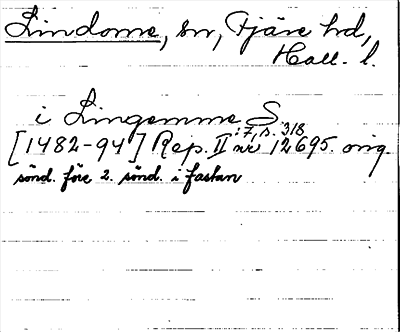 Lindome, sn, Fjäre hd,
Hall. l.
i Lingemme S
[1482-94] Rep. II :7, s. 318 nr 12695. orig.
sönd. före 2. sönd. i fastan